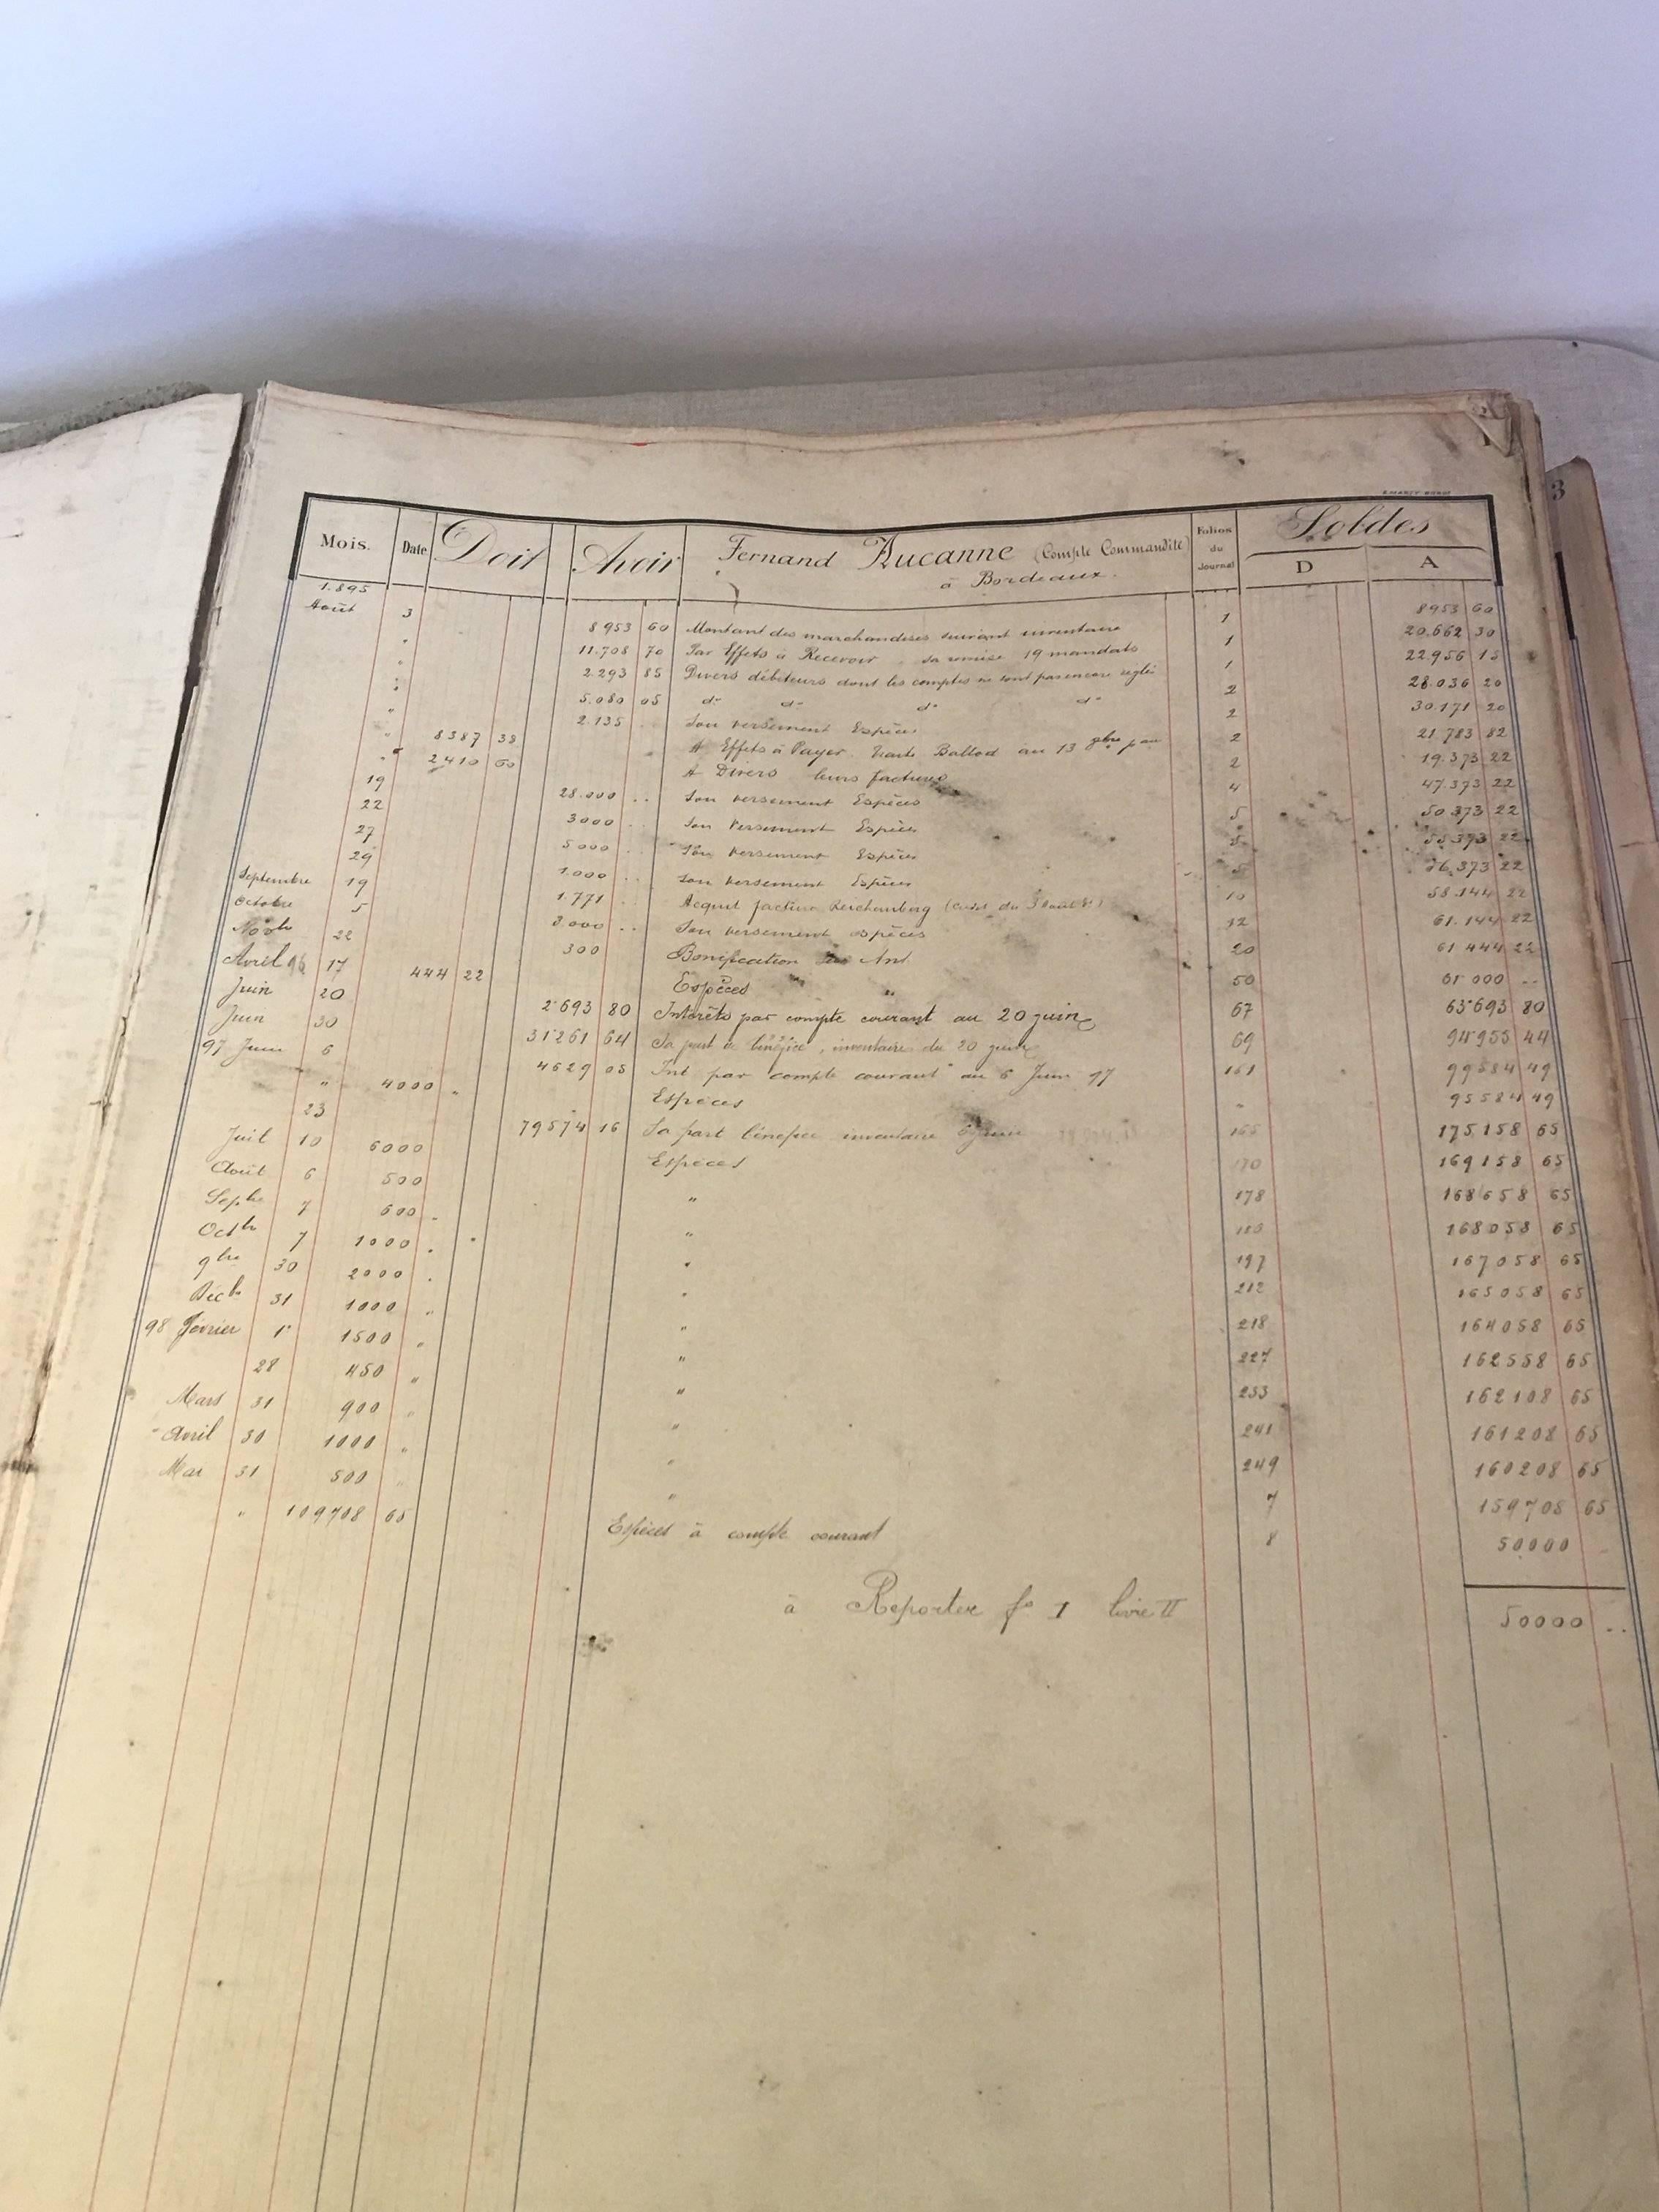 3
Mois. Date Doit Avoir Fernand Ducanne (Compte Commandite) Folios du Journal Soldes
à Bordeaux. D A
1.895
Août 3 8953 60 Montant des marchandises suivant inventaire 1 8953 60
" 11.708 70 Par Effets à Recevoir sa remise 19 mandats 1 20.662 30
" 2.293 85 Divers débiteurs dont les comptes ne sont pas encore réglés 1 22.956 15
" 5.080 05 do do do do 2 28.036 20
" 2.135 Son versement Espèces 2 30.171 20
" 8387 38 A Effets à Payer. Traite Ballod au 13 9bre 2 21.783 82
" 2410 60 A Divers leurs factures 2 19.373 22
19 28.000 .. Son versement Espèces 4 47.373 22
22 3000 .. Son versement Espèces 5 50.373 22
27 5000 .. Son versement Espèces 5 55.373 22
29 1.000 .. Son versement Espèces 5 56.373 22
Septembre 19 1.771 Acquit facture Reichenberg 10 58.144 22
Octobre 5 3.000 .. Son versement espèces 12 61.144 22
Novbre 22 300 Bonification 20 61.444 22
Avril 96 17 444 22 Espèces 50 61 000 ..
Juin 20 2693 80 Intérêts par compte courant au 20 juin 67 63693 80
Juin 30 31261 64 Sa part de bénéfice, inventaire du 20 juin 69 94955 44
97 Juin 6 4629 05 Int par compte courant au 6 Juin 97 161 99584 49
" 4000 " Espèces " 95584 49
23 79574 16 Sa part bénéfice inventaire 6 juin 165 175158 65
Juil 10 6000 Espèces 170 169158 65
Août 6 500 " 178 168658 65
Septbre 7 600 " 168058 65
Octbre 7 1000 " 197 167058 65
9bre 30 2000 " 212 165058 65
Décbre 31 1000 " " 218 164058 65
98 Février 1er 1500 " " 227 162558 65
28 450 " " 233 162108 65
Mars 31 900 " " 241 161208 65
Avril 30 1000 " " 249 160208 65
Mai 31 500 " " 7 159708 65
" 109708 65 Espèces à compte courant 8 50000
à Reporter fo 1 livre II 50000 ..